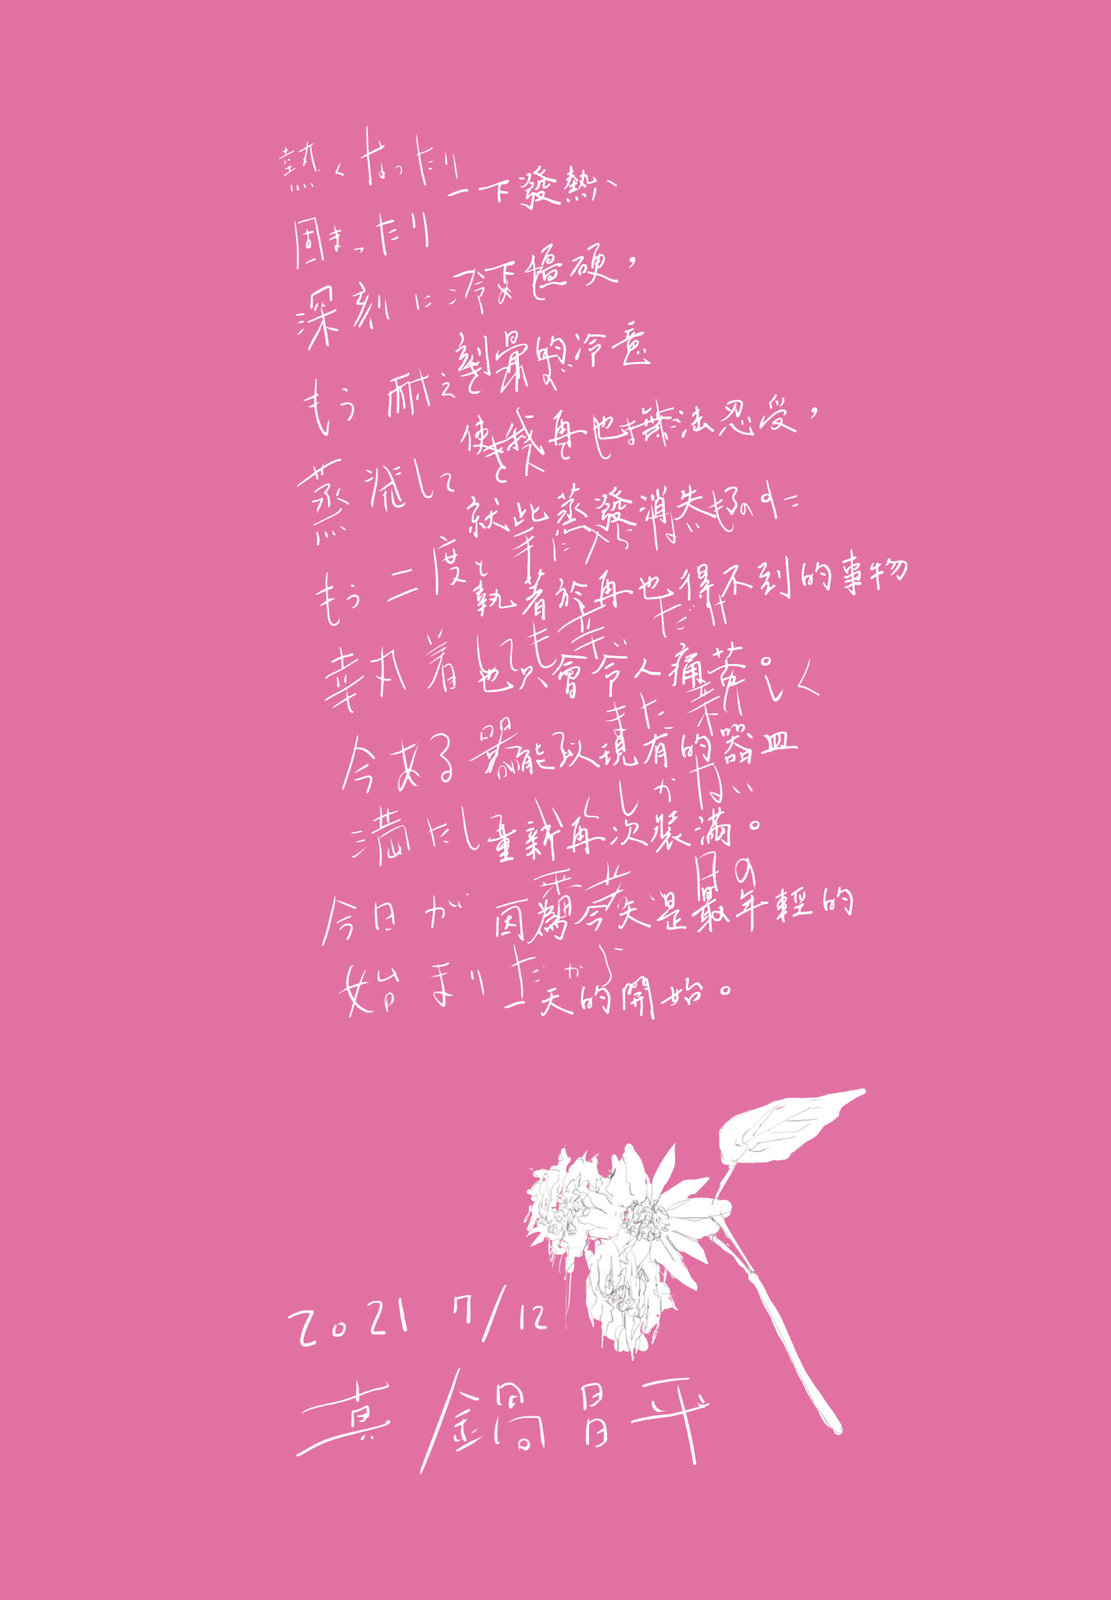 熱くなったり
一下發熱、
固まったり
深刻に冷
一下僵硬，
もう耐え
刻骨的冷意
使我再也無法忍受，
蒸発して
就此蒸發消失
ものに
もう二度と手に入ら
執著於再也得不到的事物
執着しても辛いだけ
也只會令人痛苦。
また新しく
今ある器
能以現有的器皿
満たし しかない
重新再次裝滿。
今日が 番若 日の
因為今天是最年輕的
始まりだから
一天的開始。
2021 7/12
真鍋昌平